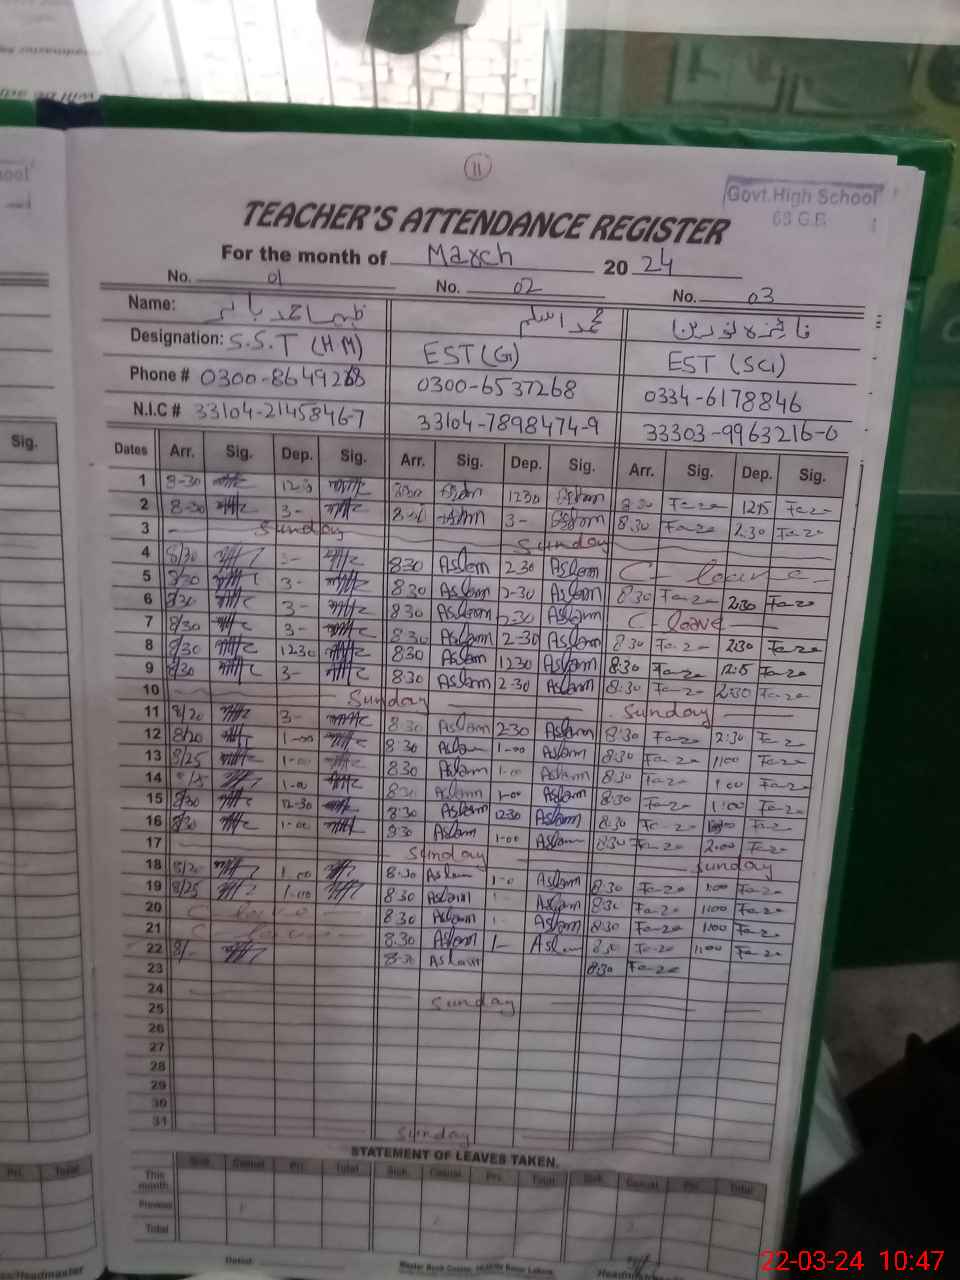 11
Govt.High School
TEACHER'S ATTENDANCE REGISTER
For the month of March 2024
No. 01 No. 02 No. 03
Name: محمد اسلم فائزہ نورین
Designation: S.S.T (HM) EST(G) EST (SCI)
Phone # 0300-8649268 0300-6537268 0334-6178846
N.I.C # 33104-2145846-7 33104-7898474-9 33303-9963216-0
Sig.
Dates Arr. Sig. Dep. Sig. Arr. Sig. Dep. Sig. Arr. Sig. Dep. Sig.
1 8-30 1230 8:30 Aslam 1230 Aslam 8:30 Fa-ze 12:15 Fa-ze
2 8-30 3- 8:30 Aslam 3- Aslam 8:30 Fa-ze 2:30 Fa-ze
3 Sunday Sunday
4 8/30 3- 8:30 Aslam 2-30 Aslam C- leave
5 8/30 3- 8:30 Aslam 2-30 Aslam 8:30 Fa-ze 2:30 Fa-ze
6 8/30 3- 8:30 Aslam 2-30 Aslam C- leave
7 8/30 3- 8:30 Aslam 2-30 Aslam 8:30 Fa-ze 2:30 Fa-ze
8 8/30 1230 8:30 Aslam 1230 Aslam 8:30 Fa-ze 12:15 Fa-ze
9 8/30 3- 8:30 Aslam 2-30 Aslam 8:30 Fa-ze 2:30 Fa-ze
10 Sunday Sunday
11 8/20 3- 8:30 Aslam 2-30 Aslam 8:30 Fa-ze 2:30 Fa-ze
12 8/20 1-00 8:30 Aslam 1-00 Aslam 8:30 Fa-ze 1:00 Fa-ze
13 8/25 1-00 8:30 Aslam 1-00 Aslam 8:30 Fa-ze 1:00 Fa-ze
14 1-00 8:30 Aslam 1-00 Aslam 8:30 Fa-ze 1:00 Fa-ze
15 8/30 12-30 8:30 Aslam 1230 Aslam 8:30 Fa-ze Fa-ze
16 8/30 1-00 8:30 Aslam 1-00 Aslam 8:30 Fa-ze 2:00 Fa-ze
17 Sunday Sunday
18 8/20 1-00 8:30 Aslam 1-0 Aslam 8:30 Fa-ze 1:00 Fa-ze
19 8/25 1-00 8:30 Aslam 1- Aslam 8:30 Fa-ze 1:00 Fa-ze
20 C- leave 8:30 Aslam 1- Aslam 8:30 Fa-ze 1:00 Fa-ze
21 C- leave 8:30 Aslam 1- Aslam 8:30 Fa-ze 1:00 Fa-ze
22 8/- 8:30 Aslam 8:30 Fa-ze
23
24 Sunday
25
26
27
28
29
30
31 Sunday
STATEMENT OF LEAVES TAKEN.
Sick Casual Pri. Total Sick Casual Pri. Total Sick Casual Pri. Total
This month
Previous
Total
Pri. Total
Headmaster
22-03-24 10:47